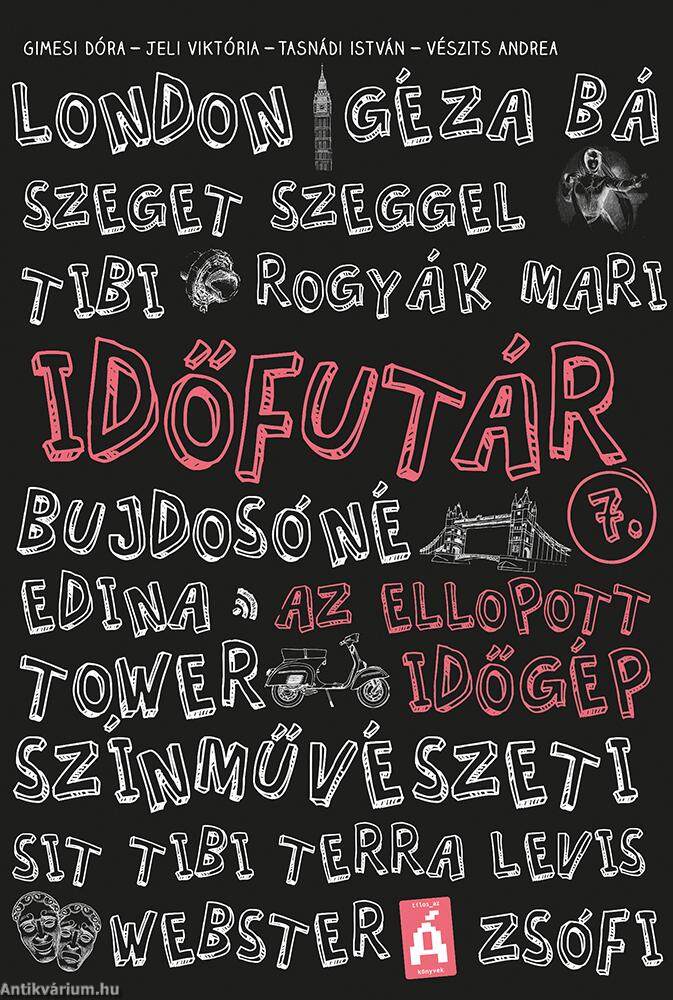 GIMESI DÓRA – JELI VIKTÓRIA – TASNÁDI ISTVÁN – VÉSZITS ANDREA
LONDON GÉZA BÁ
SZEGET SZEGGEL
TIBI ROGYÁK MARI
IDŐFUTÁR
BUJDOSÓNÉ 7.
EDINA AZ ELLOPOTT
TOWER IDŐGÉP
SZÍNMŰVÉSZETI
SIT TIBI TERRA LEVIS
WEBSTER tilos_az Á könyvek ZSÓFI
Antikvárium.hu